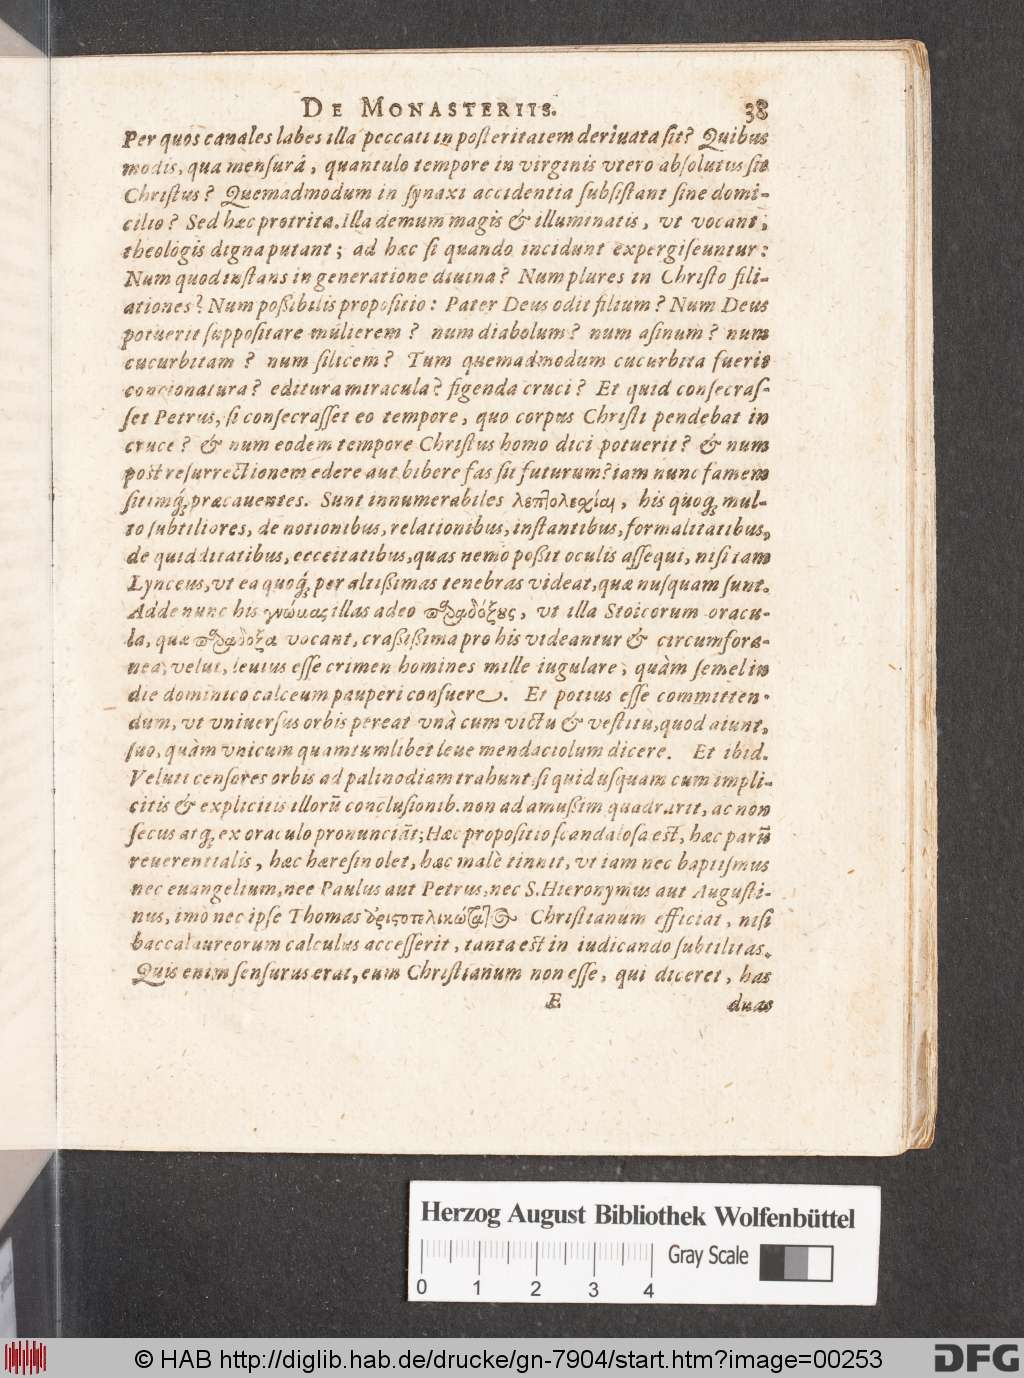 DE MONASTERIIS. 38
Per quos canales labes illa peccati in posteritatem deriuata sit? Quibus
modis, qua mensurâ, quantulo tempore in virginis vtero absolutus sit
Christus? Quemadmodum in synaxi accidentia subsistant sine domi-
cilio? Sed hæc protrita. Illa demum magis & illuminatis, vt vocant,
theologis digna putant; ad hæc si quando incidunt expergiscuntur:
Num quod instans in generatione diuina? Num plures in Christo fili-
ationes? Num poßibilis propositio: Pater Deus odit filium? Num Deus
potuerit suppositare mulierem? num diabolum? num asinum? num
cucurbitam? num silicem? Tum quemadmodum cucurbita fuerit
concionatura? editura miracula? figenda cruci? Et quid consecras-
set Petrus, si consecrasset eo tempore, quo corpus Christi pendebat in
cruce? & num eodem tempore Christus homo dici potuerit? & num
post resurrectionem edere aut bibere fas sit futurum? iam nunc famem
sitimq; præcauentes. Sunt innumerabiles λεπτολεσχίαι, his quoq; mul-
to subtiliores, de notionibus, relationibus, instantibus, formalitatibus,
de quidditatibus, ecceitatibus, quas nemo poßit oculis assequi, nisi tam
Lynceus, vt ea quoq; per altißimas tenebras videat, quæ nusquam sunt.
Adde nunc his γνώμας illas adeo παραδόξους, vt illa Stoicorum oracu-
la, quæ παράδοξα vocant, craßißima pro his videantur & circumfora-
nea, velut, leuius esse crimen homines mille iugulare, quàm semel in
die dominico calceum pauperi consuere. Et potius esse committen-
dum, vt vniuersus orbis pereat vnà cum victu & vestitu, quod aiunt,
suo, quàm vnicum quamtumlibet leue mendaciolum dicere. Et ibid.
Veluti censores orbis ad palinodiam trahunt, si quid usquam cum impli-
citis & explicitis illorū conclusionib. non ad amußim quadrarit, ac non
secus atq; ex oraculo pronunciāt; Hæc propositio scandalosa est, hæc parū
reuerentialis, hæc hæresin olet, hæc malè tinnit, vt iam nec baptismus
nec euangelium, nec Paulus aut Petrus, nec S. Hieronymus aut Augusti-
nus, imò nec ipse Thomas ἀριστοτελικώτατος Christianum efficiat, nisi
baccalaureorum calculus accesserit, tanta est in iudicando subtilitas.
Quis enim sensurus erat, eum Christianum non esse, qui diceret, has
E duas
Herzog August Bibliothek Wolfenbüttel
0 1 2 3 4 Gray Scale
© HAB http://diglib.hab.de/drucke/gn-7904/start.htm?image=00253 DFG